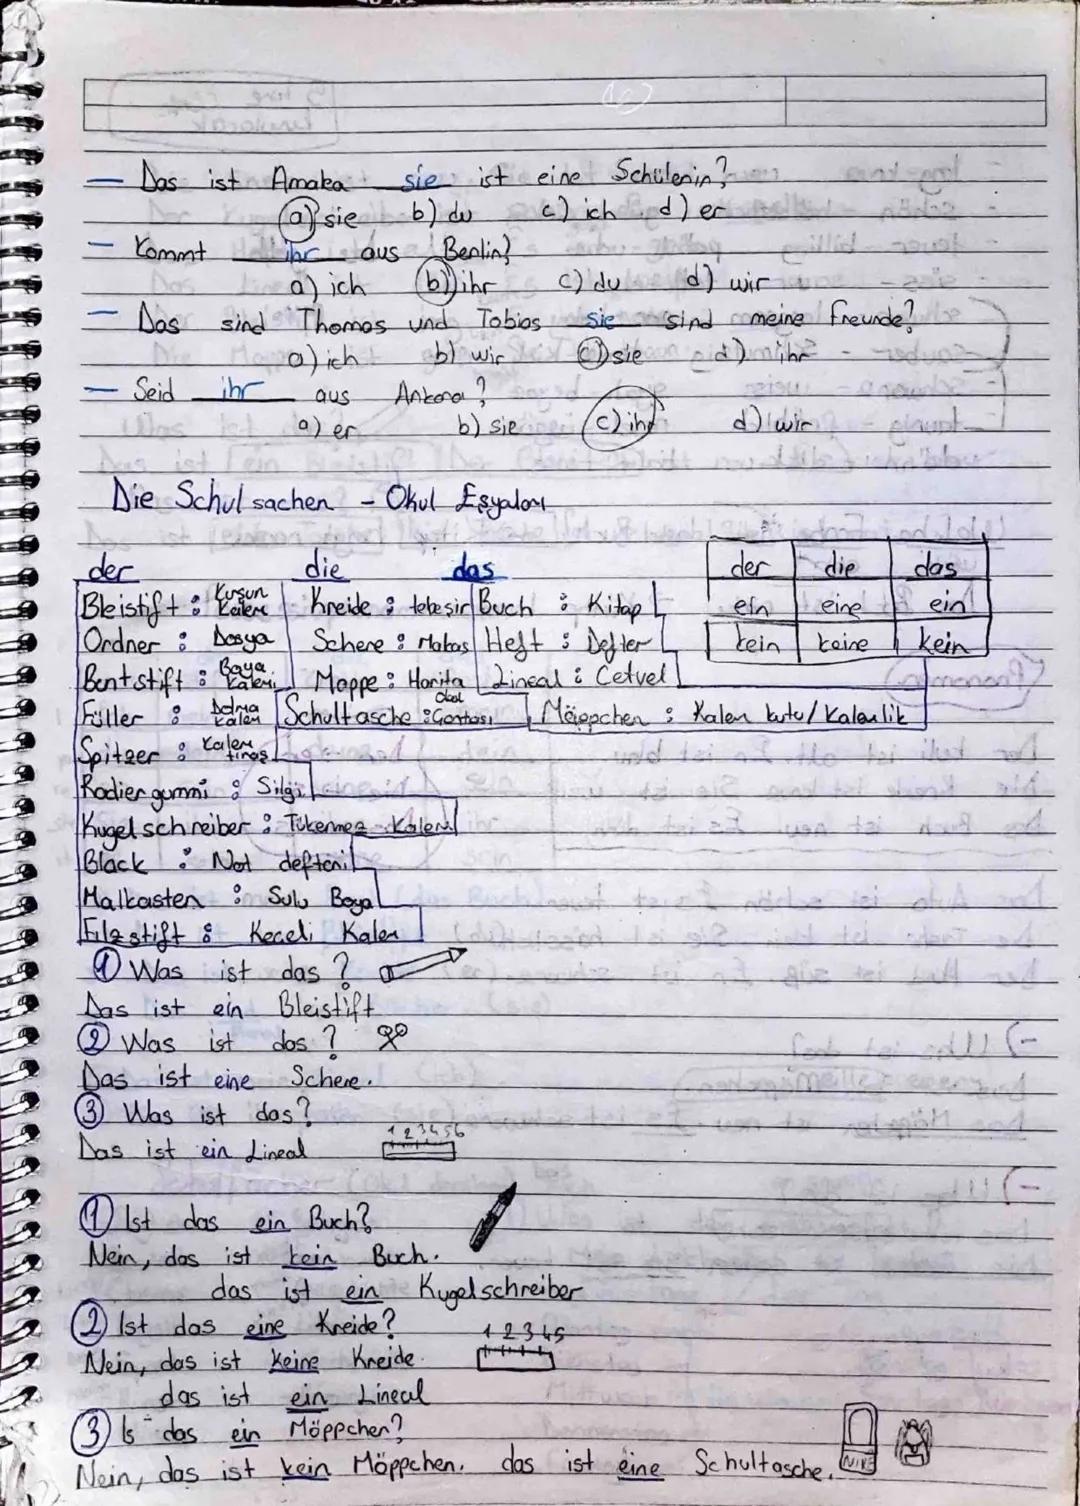 — Das ist Amaka sie ist eine Schülenin?
a) sie b) du c) ich d) er
— Kommt ihr aus Berlin?
a) ich b) ihr c) du d) wir
— Das sind Thomas und Tobias sie sind meine freunde?
a) ich b) wir c) sie d) ihr
— Seid ihr aus Ankara?
a) er b) sie c) ihr d) wir
Die Schulsachen - Okul Eşyaları
der die das der die das
Bleistift : Kurşun Kalem Kreide : tebeşir Buch : Kitap ein eine ein
Ordner : Dosya Schere : Makas Heft : Defter kein keine kein
Bontstift : Boya Kalemi Mappe : Harita Lineal : Cetvel
Füller : Dolma Kalem Schultasche : Okul Çantası Mäppchen : Kalem kutu / Kalemlik
Spitzer : Kalem tıraş
Radiergummi : Silgi
Kugelschreiber : Tükenmez Kalem
Black : Not defteri
Malkasten : Sulu Boya
Filzstift : Keçeli Kalem
① Was ist das?
Das ist ein Bleistift
② Was ist das?
Das ist eine Schere.
③ Was ist das?
1 2 3 4 5 6
Das ist ein Lineal
① Ist das ein Buch?
Nein, das ist kein Buch.
das ist ein Kugelschreiber
② Ist das eine Kreide? 1 2 3 4 5
Nein, das ist keine Kreide.
das ist ein Lineal
③ Is das ein Mäppchen?
Nein, das ist kein Mäppchen. das ist eine Schultasche. NIKE